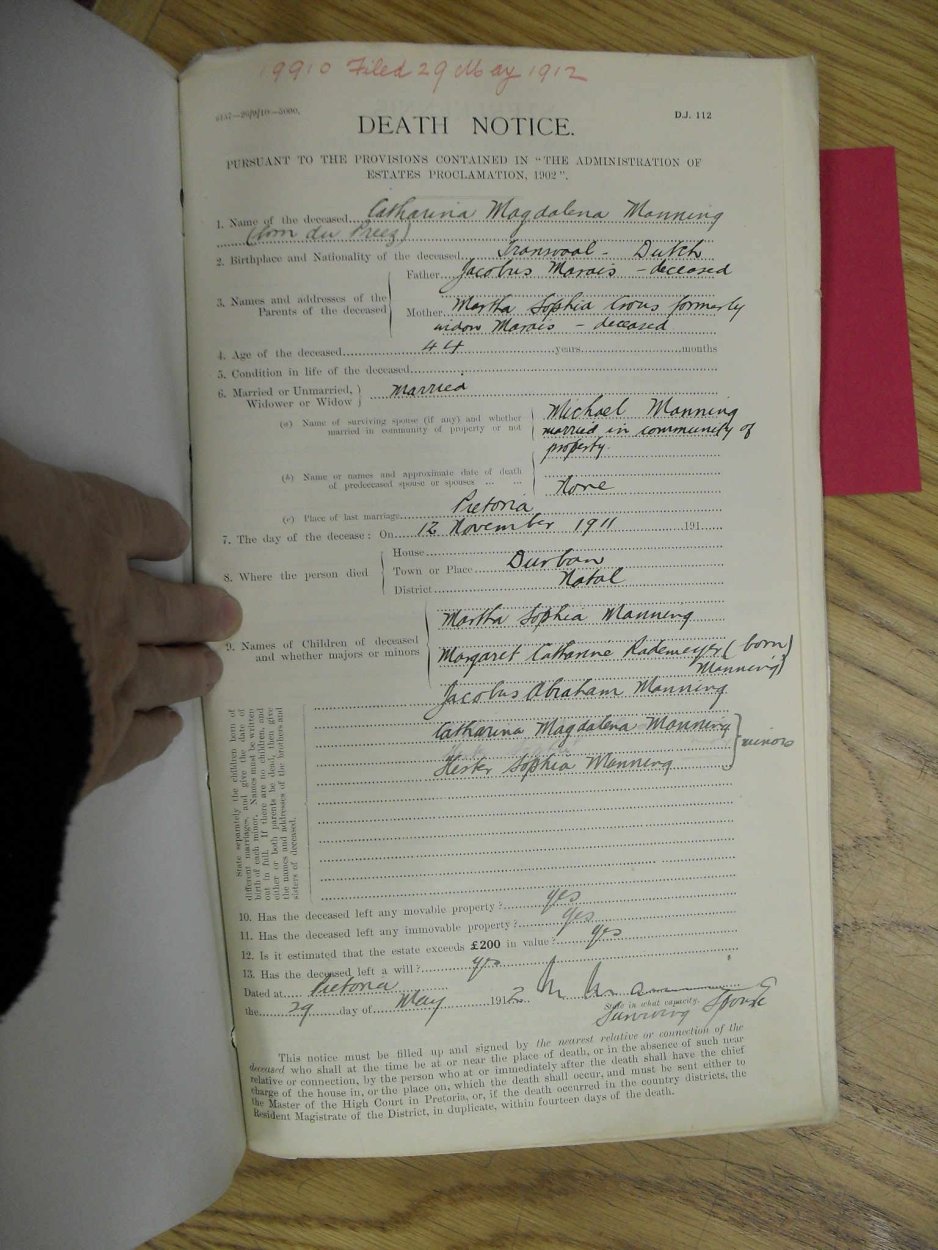 19910 Filed 29 May 1912
D.J. 112
DEATH NOTICE.
PURSUANT TO THE PROVISIONS CONTAINED IN "THE ADMINISTRATION OF
ESTATES PROCLAMATION, 1902".
1. Name of the deceased Catharina Magdalena Manning
(born du Preez)
2. Birthplace and Nationality of the deceased Transvaal - Dutch
3. Names and addresses of the Parents of the deceased
Father Jacobus Marais - deceased
Mother Martha Sophia Crous formerly
widow Marais - deceased
4. Age of the deceased 44 years months
5. Condition in life of the deceased
6. Married or Unmarried, Widower or Widow } Married
(a) Name of surviving spouse (if any) and whether married in community of property or not
Michael Manning
married in community of
property.
(b) Name or names and approximate date of death of predeceased spouse or spouses ... ...
None
(c) Place of last marriage Pretoria
7. The day of the decease: On 12 November 1911 191
8. Where the person died
House
Town or Place Durban
District Natal
9. Names of Children of deceased and whether majors or minors
Martha Sophia Manning
Margaret Catharine Rademeyer (born
Manning)
Jacobus Abraham Manning
Catharina Magdalena Manning
Hester Sophia Manning
} minors
State separately the children born of
different marriages, and give the date of
birth of each minor. Names must be written
out in full. If there are no children, and
either or both parents be dead, then give
the names and addresses of the brothers and
sisters of deceased.
10. Has the deceased left any movable property? yes
11. Has the deceased left any immovable property? yes
12. Is it estimated that the estate exceeds £200 in value? yes
13. Has the deceased left a will? yes
Dated at Pretoria
the 29 day of May 1912
State in what capacity.
Surviving Spouse
This notice must be filled up and signed by the nearest relative or connection of the
deceased who shall at the time be at or near the place of death, or in the absence of such near
relative or connection, by the person who at or immediately after the death shall have the chief
charge of the house in, or the place on, which the death shall occur, and must be sent either to
the Master of the High Court in Pretoria, or, if the death occurred in the country districts, the
Resident Magistrate of the District, in duplicate, within fourteen days of the death.